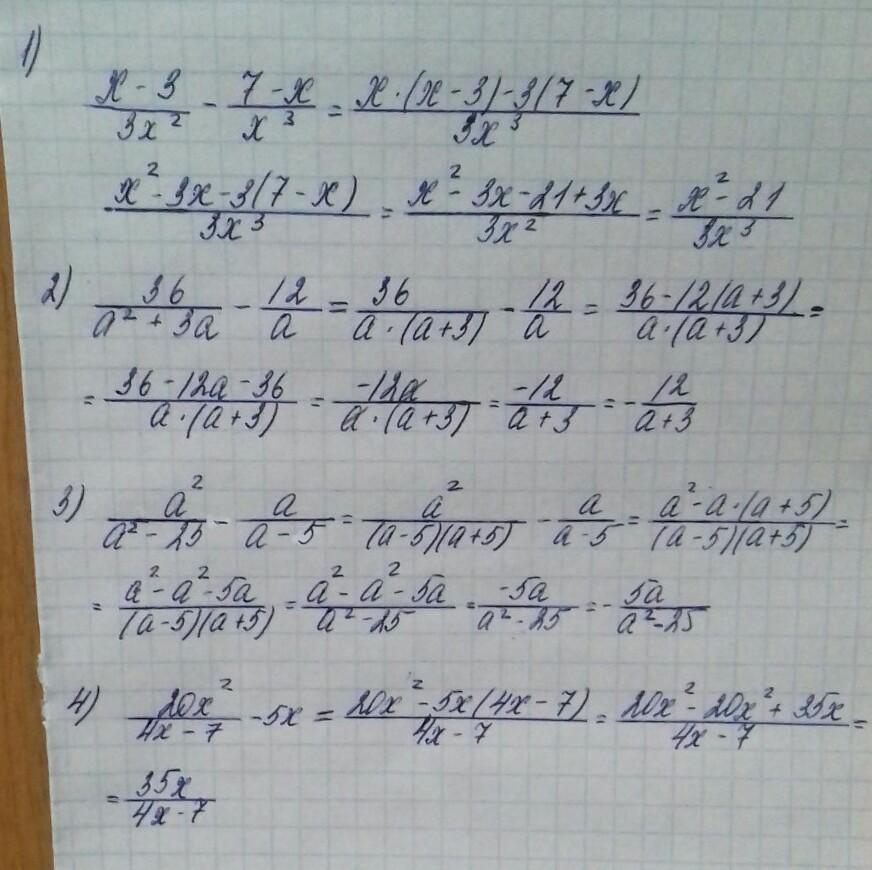 1)
\frac{x-3}{3x^2} - \frac{7-x}{x^3} = \frac{x·(x-3)-3(7-x)}{3x^3}
\frac{x^2-3x-3(7-x)}{3x^3} = \frac{x^2-3x-21+3x}{3x^2} = \frac{x^2-21}{3x^3}
2) \frac{36}{a^2+3a} - \frac{12}{a} = \frac{36}{a·(a+3)} - \frac{12}{a} = \frac{36-12(a+3)}{a·(a+3)} =
= \frac{36-12a-36}{a·(a+3)} = \frac{-12a}{a·(a+3)} = \frac{-12}{a+3} = -\frac{12}{a+3}
3) \frac{a^2}{a^2-25} - \frac{a}{a-5} = \frac{a^2}{(a-5)(a+5)} - \frac{a}{a-5} = \frac{a^2-a·(a+5)}{(a-5)(a+5)} =
= \frac{a^2-a^2-5a}{(a-5)(a+5)} = \frac{a^2-a^2-5a}{a^2-25} = \frac{-5a}{a^2-25} = -\frac{5a}{a^2-25}
4) \frac{20x^2}{4x-7} - 5x = \frac{20x^2-5x(4x-7)}{4x-7} = \frac{20x^2-20x^2+35x}{4x-7} =
= \frac{35x}{4x-7}